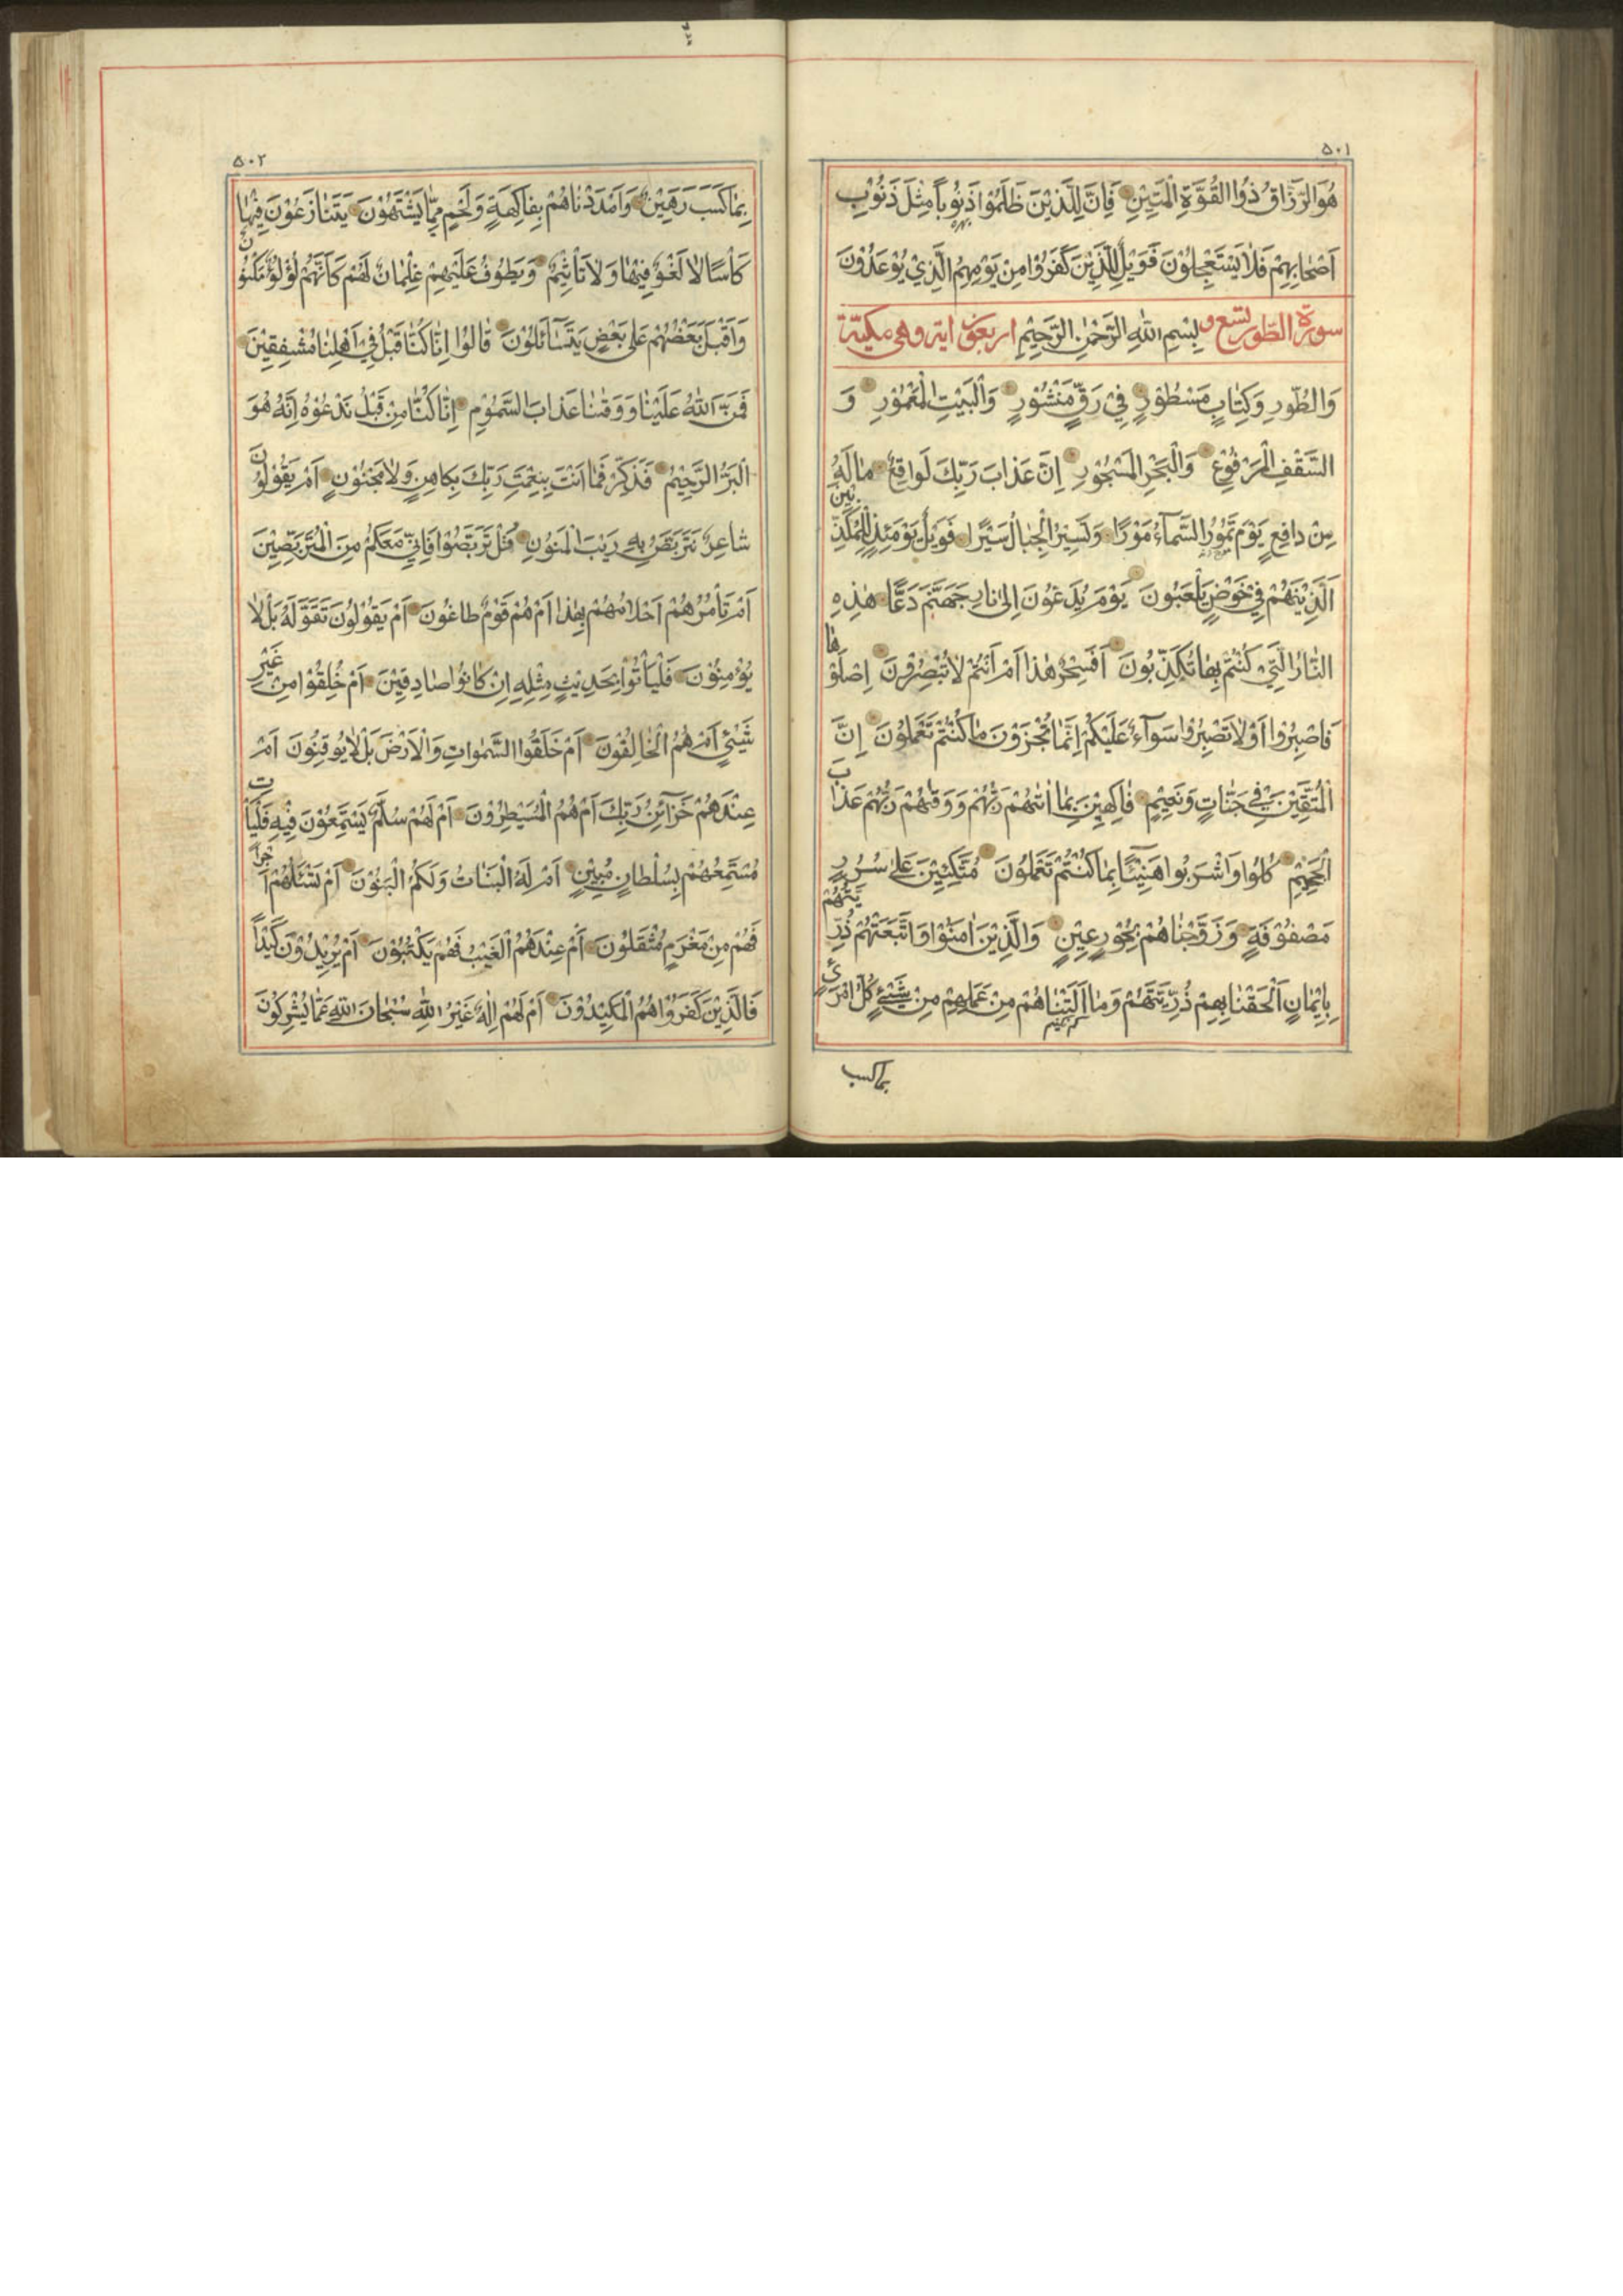 ٥٠١
هُوَ الرَّزَّاقُ ذُو الْقُوَّةِ الْمَتِيْنِ فَاِنَّ لِلَّذِيْنَ ظَلَمُوْا ذَنُوْبًا مِثْلَ ذَنُوْبِ
اَصْحَابِهِمْ فَلَا يَسْتَعْجِلُوْنَ فَوَيْلٌ لِلَّذِيْنَ كَفَرُوْا مِنْ يَوْمِهِمُ الَّذِيْ يُوْعَدُوْنَ
سورة الطّور تسع و بِسْمِ اللّٰهِ الرَّحْمٰنِ الرَّحِيْمِ اربعون اية وهى مكيّة
وَالطُّوْرِ وَكِتَابٍ مَسْطُوْرٍ فِيْ رَقٍّ مَنْشُوْرٍ وَالْبَيْتِ الْمَعْمُوْرِ وَ
السَّقْفِ الْمَرْفُوْعِ وَالْبَحْرِ الْمَسْجُوْرِ اِنَّ عَذَابَ رَبِّكَ لَوَاقِعٌ مَا لَهُ
مِنْ دَافِعٍ يَوْمَ تَمُوْرُ السَّمَآءُ مَوْرًا وَتَسِيْرُ الْجِبَالُ سَيْرًا فَوَيْلٌ يَوْمَئِذٍ لِلْمُكَذِّبِيْنَ
اَلَّذِيْنَ هُمْ فِيْ خَوْضٍ يَلْعَبُوْنَ يَوْمَ يُدَعُّوْنَ اِلٰى نَارِ جَهَنَّمَ دَعًّا هٰذِهِ
النَّارُ الَّتِيْ كُنْتُمْ بِهَا تُكَذِّبُوْنَ اَفَسِحْرٌ هٰذَا اَمْ اَنْتُمْ لَا تُبْصِرُوْنَ اِصْلَوْهَا
فَاصْبِرُوْا اَوْ لَا تَصْبِرُوْا سَوَآءٌ عَلَيْكُمْ اِنَّمَا تُجْزَوْنَ مَا كُنْتُمْ تَعْمَلُوْنَ اِنَّ
الْمُتَّقِيْنَ فِيْ جَنَّاتٍ وَنَعِيْمٍ فَاكِهِيْنَ بِمَا اٰتٰهُمْ رَبُّهُمْ وَوَقٰهُمْ رَبُّهُمْ عَذَابَ
الْجَحِيْمِ كُلُوْا وَاشْرَبُوْا هَنِيْٓئًا بِمَا كُنْتُمْ تَعْمَلُوْنَ مُتَّكِئِيْنَ عَلٰى سُرُرٍ
مَصْفُوْفَةٍ وَزَوَّجْنَاهُمْ بِحُوْرٍ عِيْنٍ وَالَّذِيْنَ اٰمَنُوْا وَاتَّبَعَتْهُمْ ذُرِّيَّتُهُمْ
بِاِيْمَانٍ اَلْحَقْنَا بِهِمْ ذُرِّيَّتَهُمْ وَمَا اَلَتْنَاهُمْ مِنْ عَمَلِهِمْ مِنْ شَيْئٍ كُلُّ امْرِئٍ
بما كسب
٥٠٢
بِمَا كَسَبَ رَهِيْنٌ وَاَمْدَدْنَاهُمْ بِفَاكِهَةٍ وَلَحْمٍ مِمَّا يَشْتَهُوْنَ يَتَنَازَعُوْنَ فِيْهَا
كَأْسًا لَا لَغْوٌ فِيْهَا وَلَا تَأْثِيْمٌ وَيَطُوْفُ عَلَيْهِمْ غِلْمَانٌ لَهُمْ كَاَنَّهُمْ لُؤْلُؤٌ مَكْنُوْنٌ
وَاَقْبَلَ بَعْضُهُمْ عَلٰى بَعْضٍ يَتَسَآئَلُوْنَ قَالُوْا اِنَّا كُنَّا قَبْلُ فِيْ اَهْلِنَا مُشْفِقِيْنَ
فَمَنَّ اللّٰهُ عَلَيْنَا وَوَقٰنَا عَذَابَ السَّمُوْمِ اِنَّا كُنَّا مِنْ قَبْلُ نَدْعُوْهُ اِنَّهُ هُوَ
الْبَرُّ الرَّحِيْمُ فَذَكِّرْ فَمَا اَنْتَ بِنِعْمَتِ رَبِّكَ بِكَاهِنٍ وَلَا مَجْنُوْنٍ اَمْ يَقُوْلُوْنَ
شَاعِرٌ نَتَرَبَّصُ بِهِ رَيْبَ الْمَنُوْنِ قُلْ تَرَبَّصُوْا فَاِنِّيْ مَعَكُمْ مِنَ الْمُتَرَبِّصِيْنَ
اَمْ تَأْمُرُهُمْ اَحْلَامُهُمْ بِهٰذَا اَمْ هُمْ قَوْمٌ طَاغُوْنَ اَمْ يَقُوْلُوْنَ تَقَوَّلَهُ بَلْ لَا
يُؤْمِنُوْنَ فَلْيَأْتُوْا بِحَدِيْثٍ مِثْلِهِ اِنْ كَانُوْا صَادِقِيْنَ اَمْ خُلِقُوْا مِنْ غَيْرِ
شَيْئٍ اَمْ هُمُ الْخَالِقُوْنَ اَمْ خَلَقُوا السَّمٰوَاتِ وَالْاَرْضَ بَلْ لَا يُوْقِنُوْنَ اَمْ
عِنْدَهُمْ خَزَآئِنُ رَبِّكَ اَمْ هُمُ الْمُسَيْطِرُوْنَ اَمْ لَهُمْ سُلَّمٌ يَسْتَمِعُوْنَ فِيْهِ فَلْيَأْتِ
مُسْتَمِعُهُمْ بِسُلْطَانٍ مُبِيْنٍ اَمْ لَهُ الْبَنَاتُ وَلَكُمُ الْبَنُوْنَ اَمْ تَسْئَلُهُمْ اَجْرًا
فَهُمْ مِنْ مَغْرَمٍ مُثْقَلُوْنَ اَمْ عِنْدَهُمُ الْغَيْبُ فَهُمْ يَكْتُبُوْنَ اَمْ يُرِيْدُوْنَ كَيْدًا
فَالَّذِيْنَ كَفَرُوْا هُمُ الْمَكِيْدُوْنَ اَمْ لَهُمْ اِلٰهٌ غَيْرُ اللّٰهِ سُبْحَانَ اللّٰهِ عَمَّا يُشْرِكُوْنَ